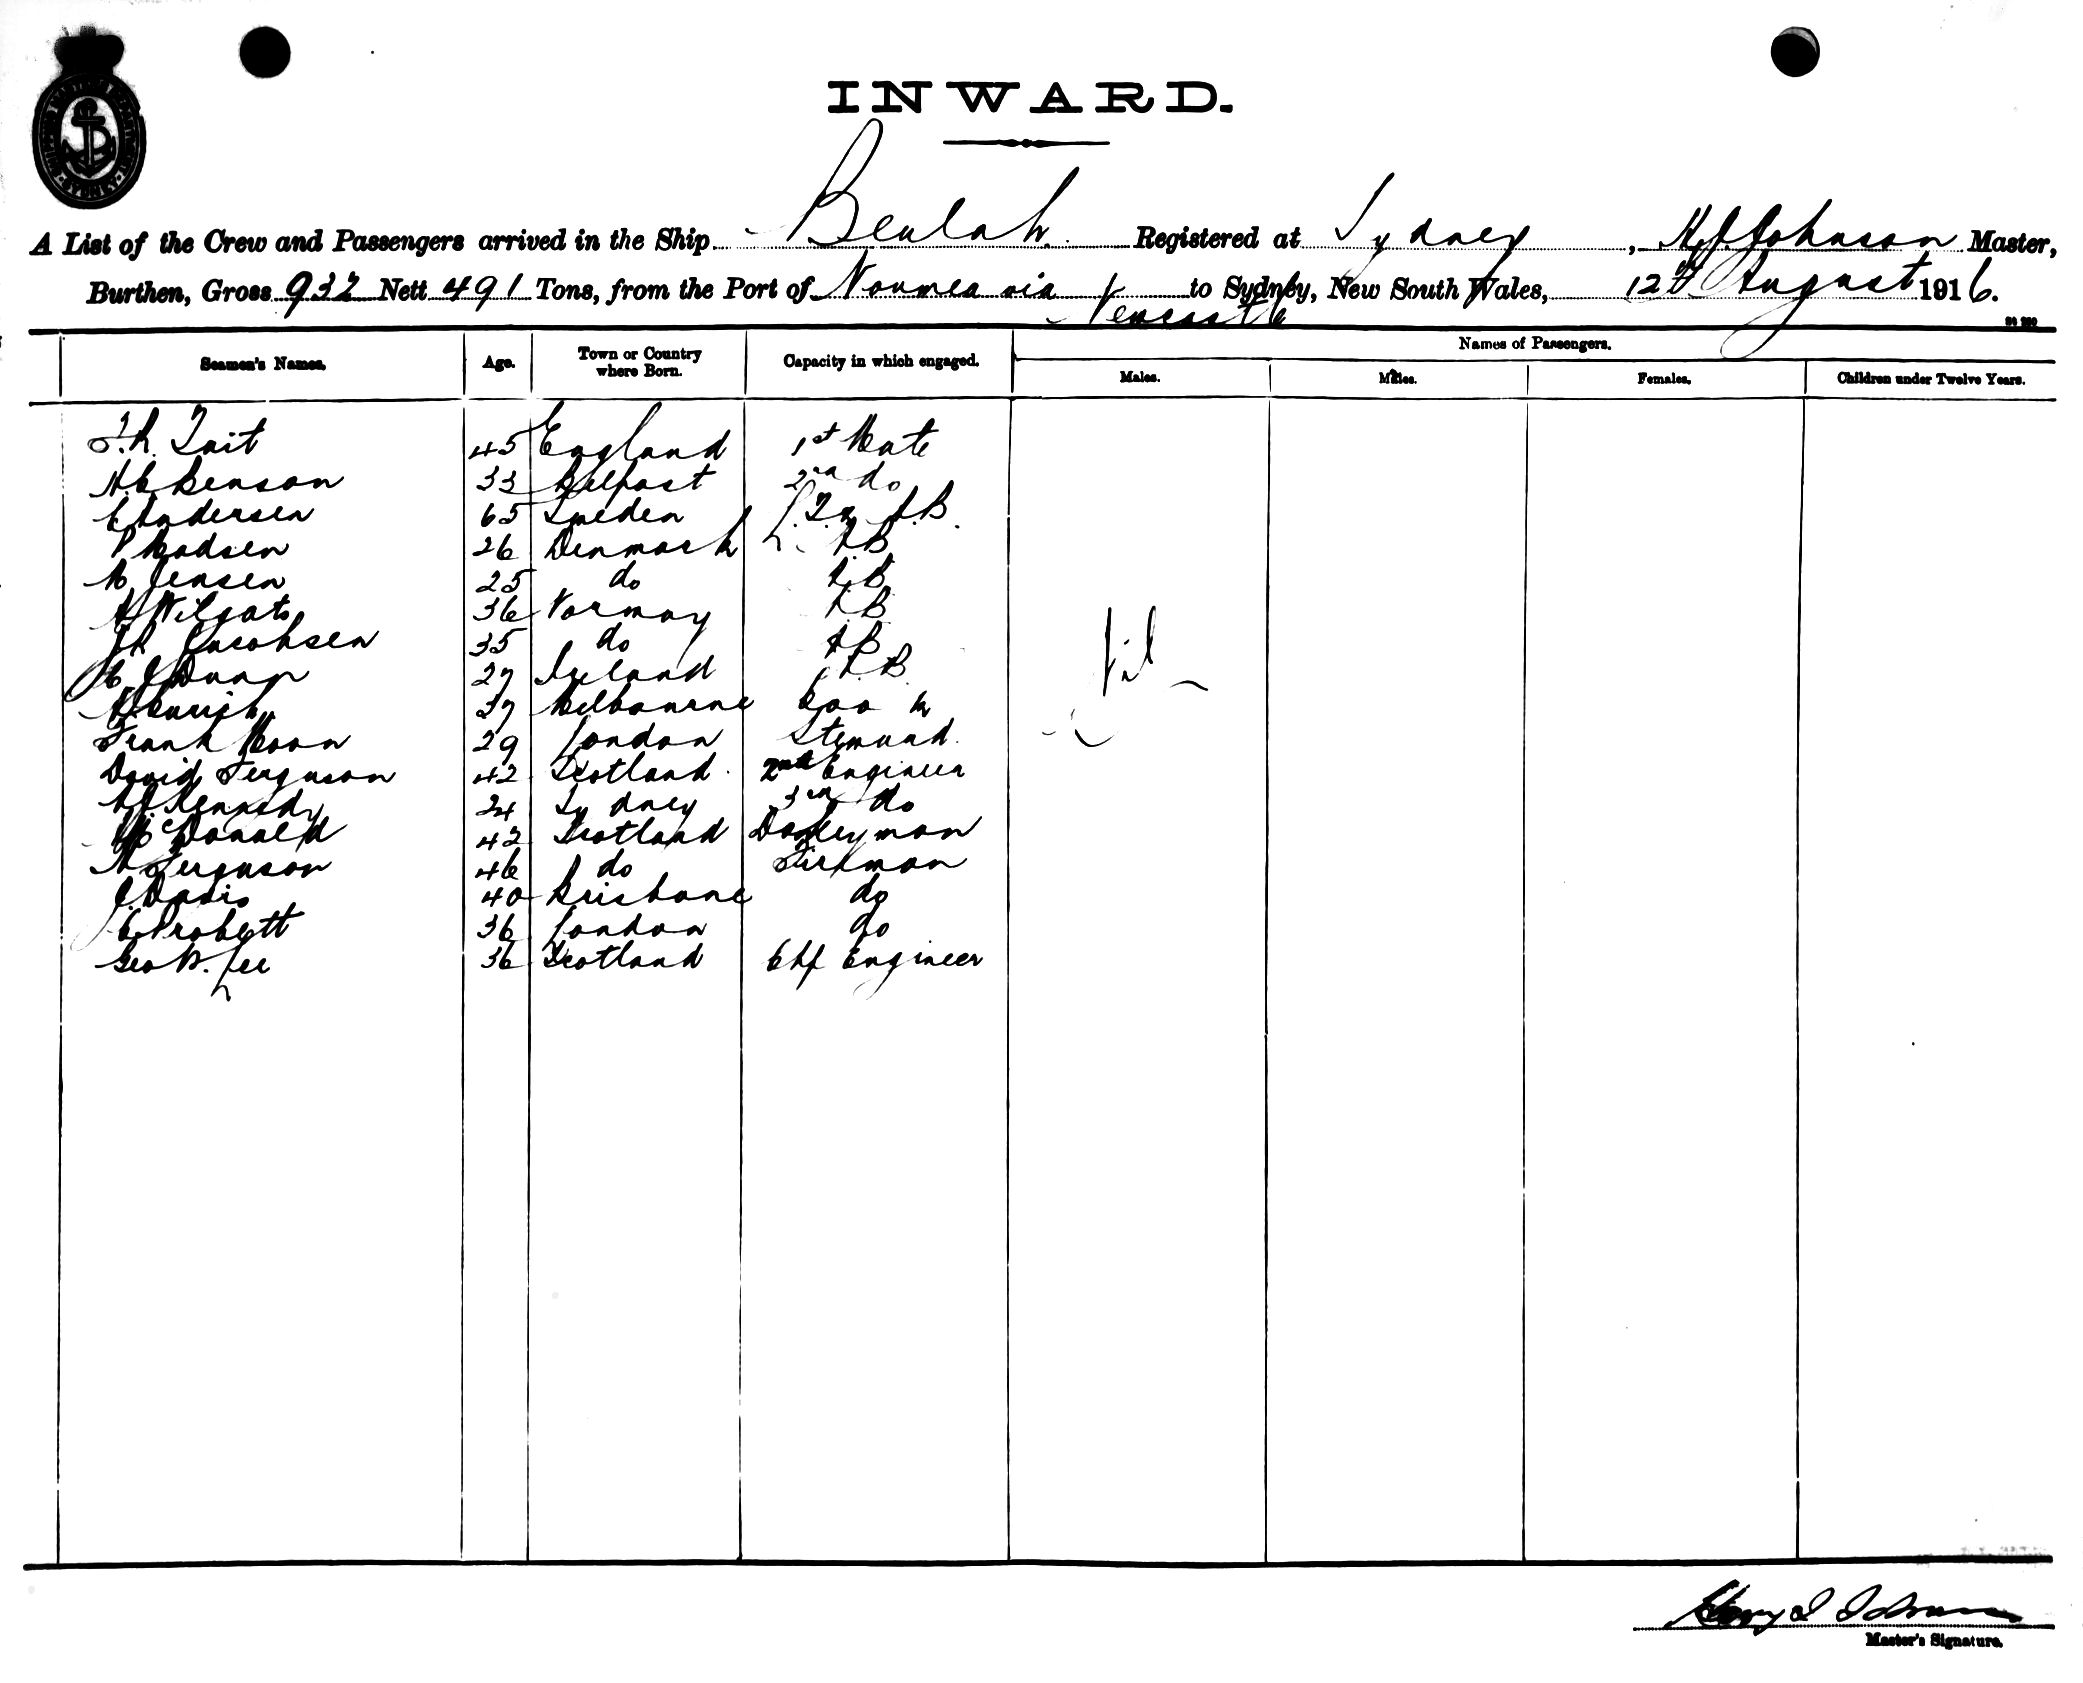 INWARD.
A List of the Crew and Passengers arrived in the Ship Beulah Registered at Sydney, H. J. Johnson Master,
Burthen, Gross 932 Nett 491 Tons, from the Port of Noumea via Newcastle to Sydney, New South Wales, 12th August 1916.
Seamen's Names. Age. Town or Country where Born. Capacity in which engaged. Names of Passengers.
Males. Males. Females. Children under Twelve Years.
Tait 45 England 1st Mate
Benson 33 Belfast 2nd do
Andersen 65 Sweden A.B.
P Madsen 26 Denmark A.B.
Jensen 25 do A.B.
36 Norway A.B.
Jacobsen 35 do A.B.
27 Ireland A.B.
37 Melbourne Cook
Frank Moon 29 London Steward
David Ferguson 42 Scotland 2nd Engineer
Kennedy 24 Sydney 3rd do
McDonald 42 Scotland Donkeyman
Ferguson 46 do Fireman
J. Davis 40 Brisbane do
Probett 36 London do
Geo Lee 36 Scotland Chf Engineer
Nil
Master's Signature.